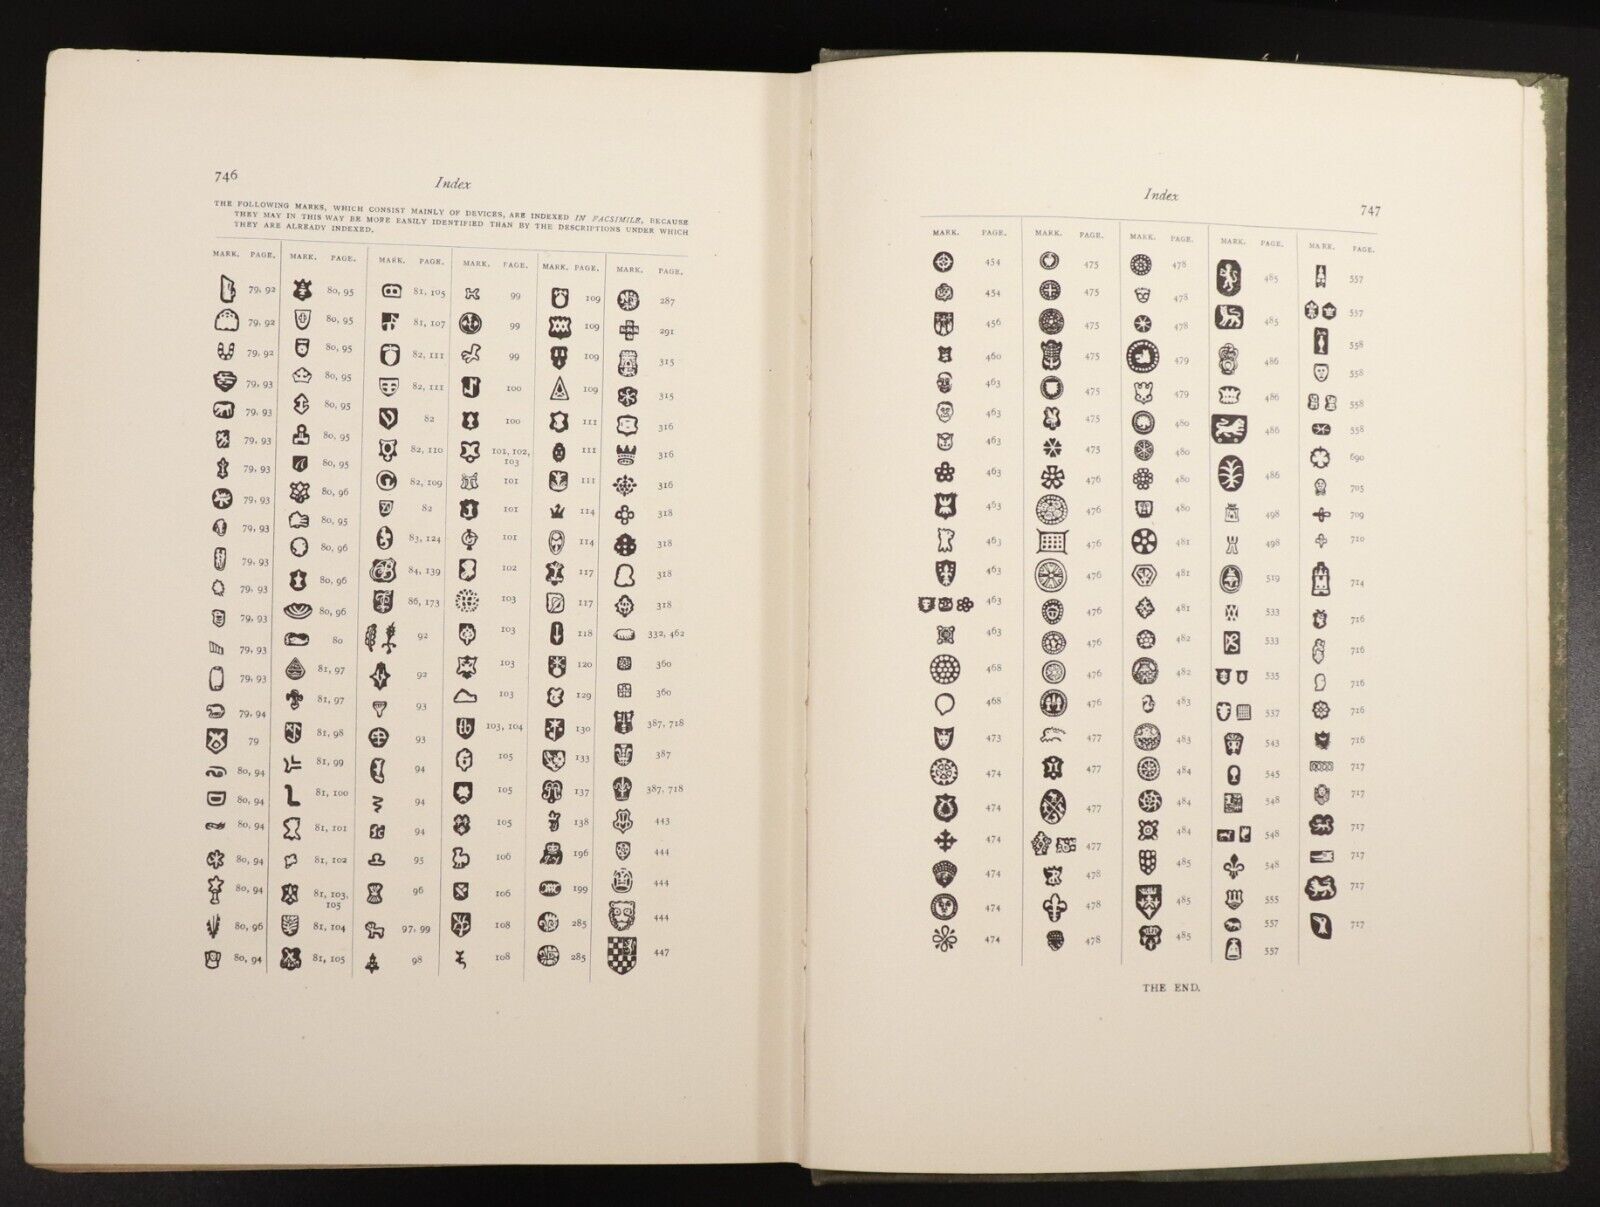 746
Index
THE FOLLOWING MARKS, WHICH CONSIST MAINLY OF DEVICES, ARE INDEXED IN FACSIMILE, BECAUSE
THEY MAY IN THIS WAY BE MORE EASILY IDENTIFIED THAN BY THE DESCRIPTIONS UNDER WHICH
THEY ARE ALREADY INDEXED.
MARK. PAGE.
79, 92
79, 92
79, 92
79, 93
79, 93
79, 93
79, 93
79, 93
79, 93
79, 93
79, 93
79, 93
79, 93
79, 93
79, 94
79
80, 94
80, 94
80, 94
80, 94
80, 94
80, 96
80, 94
MARK. PAGE.
80, 95
80, 95
80, 95
80, 95
80, 95
80, 95
80, 95
80, 96
80, 95
80, 96
80, 96
80, 96
80
81, 97
81, 97
81, 98
81, 99
81, 100
81, 101
81, 102
81, 103,
105
81, 104
81, 105
MARK. PAGE.
81, 105
81, 107
82, 111
82, 111
82
82, 110
82, 109
82
83, 124
84, 139
86, 173
92
92
93
93
94
94
94
95
96
97, 99
98
MARK. PAGE.
99
99
99
100
100
101, 102,
103
101
101
101
102
103
103
103
103
103, 104
105
105
105
106
106
108
108
MARK. PAGE.
109
109
109
109
111
111
111
114
114
117
117
118
120
129
130
133
137
138
196
199
285
285
MARK. PAGE.
287
291
315
315
316
316
316
318
318
318
318
332, 462
360
360
387, 718
387
387, 718
443
444
444
444
447
Index
747
MARK. PAGE.
454
454
456
460
463
463
463
463
463
463
463
463
463
468
468
473
474
474
474
474
474
474
MARK. PAGE.
475
475
475
475
475
475
475
476
476
476
476
476
476
476
476
477
477
477
477
478
478
478
MARK. PAGE.
478
478
478
479
479
480
480
480
480
481
481
481
482
482
483
483
484
484
484
485
485
485
MARK. PAGE.
485
485
486
486
486
486
498
498
519
533
533
535
537
543
545
548
548
548
555
557
557
MARK. PAGE.
557
557
558
558
558
558
690
705
709
710
714
716
716
716
716
716
717
717
717
717
717
717
THE END.